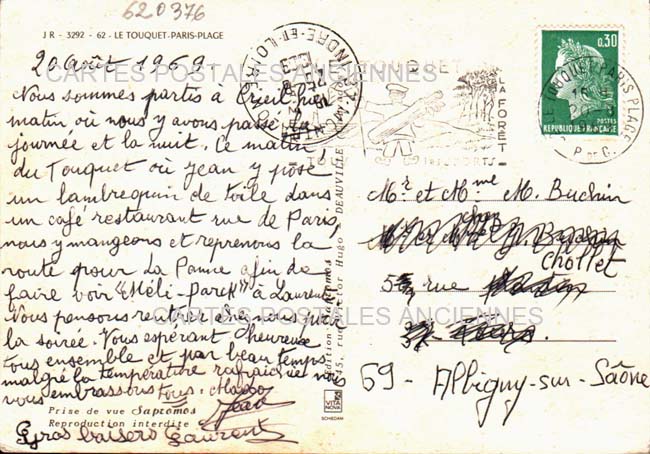 620376
J R - 3292 - 62 - LE TOUQUET-PARIS-PLAGE
20 Août 1969
Nous sommes partis à Creil hier
matin où nous y avons passé la
journée et la nuit. Ce matin
du Touquet où Jean y pose
un lambrequin de toile dans
un café restaurant rue de Paris,
nous y mangeons et reprenons la
route pour La Panne afin de
faire voir "Méli-Park" à Laurent
Nous pensons rentrer chez nous
la soirée. Vous espérant heureux
tous ensemble et par beau temps
malgré la température rafraichie
vous embrassons tous.
Jean
Gros baisers Laurent
Prise de vue Sapromos
Reproduction interdite
CARTES POSTALES ANCIENNES
CARTES POSTALES ANCIENNES
INDRE-ET-LOIRE
LE TOUQUET-PARIS-PLAGE
P. DE C.
LA FORET
SPORTS
0,30
POSTES
REPUBLIQUE FRANCAISE
Edition Sapromos
345, rue Victor Hugo - DEAUVILLE
VITA NOVA
SCHIEDAM
Mr et Mme M. Buchin
chez
Chollet
5 rue
69 - Albigny-sur-Saône